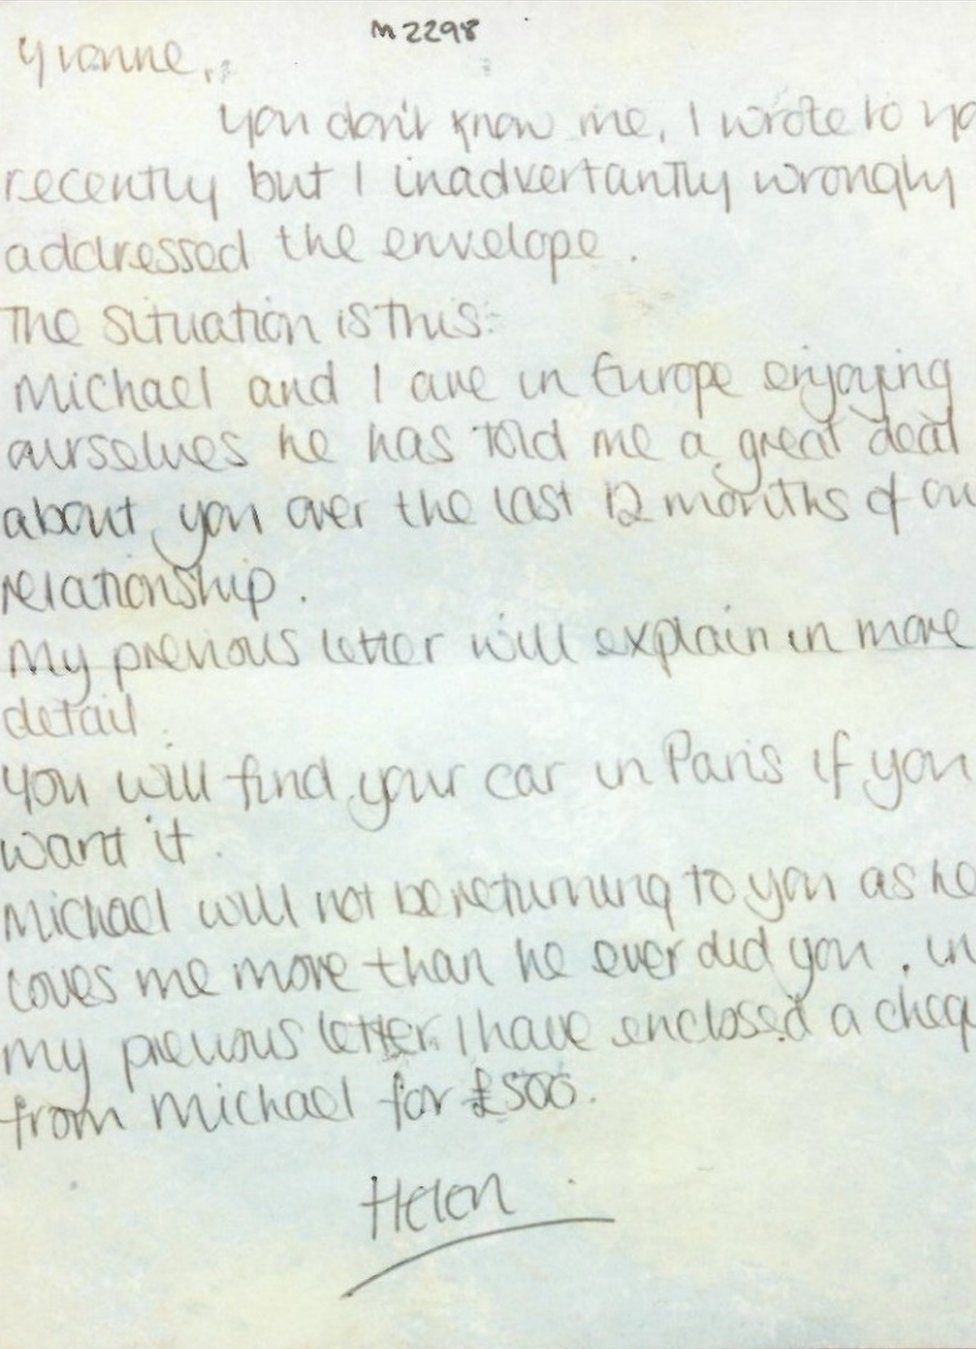 M2298
Yvonne,
you don't know me, I wrote to yo
recently but I inadvertantly wrongly
addressed the envelope.
The situation is this:
Michael and I are in Europe enjoying
ourselves he has told me a great deal
about you over the last 12 months of ou
relationship.
My previous letter will explain in more
detail.
You will find your car in Paris if you
want it.
Michael will not be returning to you as he
loves me more than he ever did you. in
my previous letter I have enclosed a cheq
from Michael for £500.
Helen